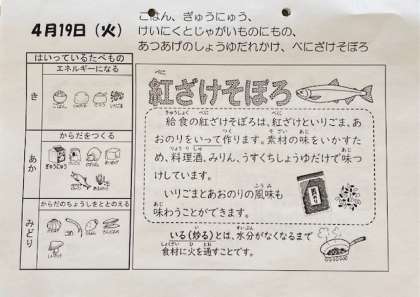 4月19日（火）
ごはん、ぎゅうにゅう、
けいにくとじゃがいものにもの、
あつあげのしょうゆだれかけ、べにざけそぼろ
はいっているたべもの
エネルギーになる
き
からだをつくる
あか
ぎゅうにゅう
からだのちょうしをととのえる
みどり
べに
紅ざけそぼろ
きゅうしょく
給食の紅ざけそぼろは、紅ざけといりごま、あ
つく そざい あじ
おのりをいって作ります。素材の味をいかすた
りょうりしゅ あじ
め、料理酒、みりん、うすくちしょうゆだけで味つ
けしています。
ふうみ
いりごまとあおのりの風味も
あじ
味わうことができます。
すいぶん
いる(炒る)とは、水分がなくなるまで
しょくざい ひ とお
食材に火を通すことです。